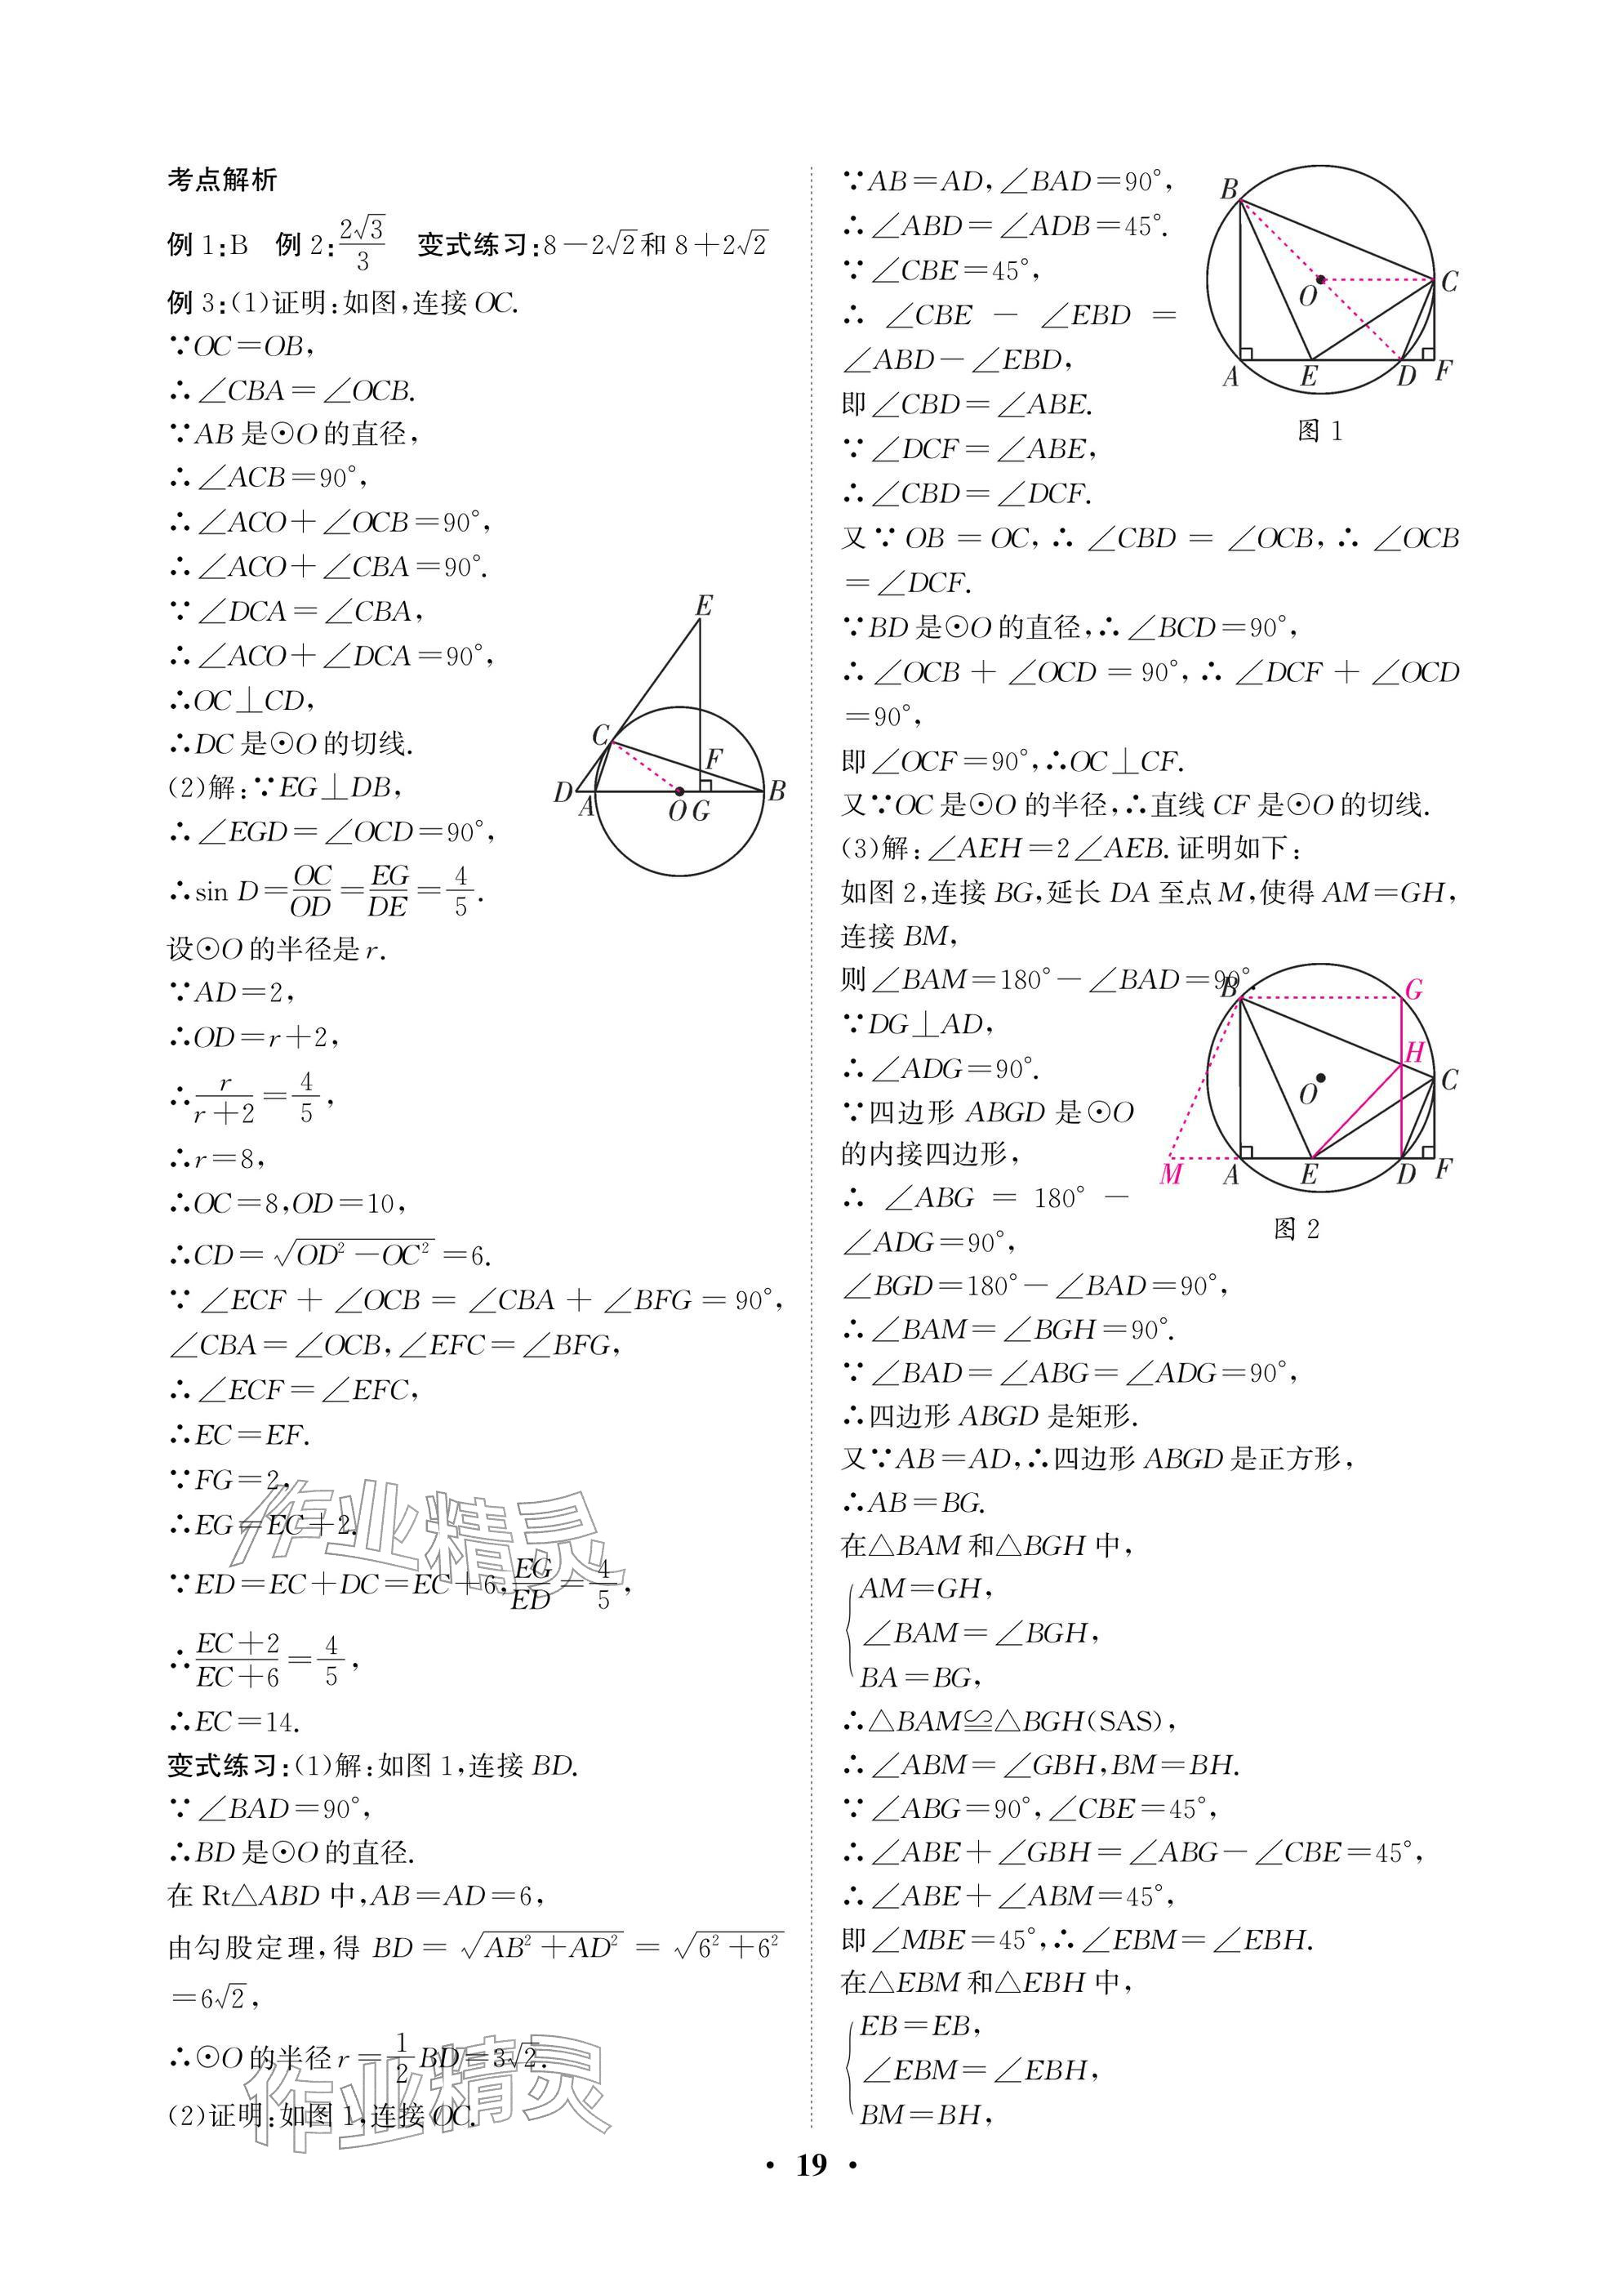 考点解析
例 1:B 例 2:2√3/3 变式练习:8－2√2和 8＋2√2
例 3:(1)证明:如图,连接 OC.
∵OC＝OB,
∴∠CBA＝∠OCB.
∵AB 是⊙O 的直径,
∴∠ACB＝90°,
∴∠ACO＋∠OCB＝90°,
∴∠ACO＋∠CBA＝90°.
∵∠DCA＝∠CBA,
∴∠ACO＋∠DCA＝90°,
∴OC⊥CD,
∴DC 是⊙O 的切线.
(2)解:∵EG⊥DB,
∴∠EGD＝∠OCD＝90°,
∴sin D＝OC/OD＝EG/DE＝4/5.
设⊙O 的半径是 r.
∵AD＝2,
∴OD＝r＋2,
∴r/(r＋2)＝4/5,
∴r＝8,
∴OC＝8,OD＝10,
∴CD＝√(OD²－OC²)＝6.
∵∠ECF＋∠OCB＝∠CBA＋∠BFG＝90°,
∠CBA＝∠OCB,∠EFC＝∠BFG,
∴∠ECF＝∠EFC,
∴EC＝EF.
∵FG＝2,
∴EG＝EC＋2.
∵ED＝EC＋DC＝EC＋6,EG/ED＝4/5,
∴(EC＋2)/(EC＋6)＝4/5,
∴EC＝14.
变式练习:(1)解:如图 1,连接 BD.
∵∠BAD＝90°,
∴BD 是⊙O 的直径.
在 Rt△ABD 中,AB＝AD＝6,
由勾股定理,得 BD＝√(AB²＋AD²)＝√(6²＋6²)
＝6√2,
∴⊙O 的半径 r＝1/2 BD＝3√2.
(2)证明:如图 1,连接 OC.
E
C
F
D
A
O
G
B
作业精灵
作业精灵
∵AB＝AD,∠BAD＝90°,
∴∠ABD＝∠ADB＝45°.
∵∠CBE＝45°,
∴∠CBE－∠EBD＝
∠ABD－∠EBD,
即∠CBD＝∠ABE.
∵∠DCF＝∠ABE,
∴∠CBD＝∠DCF.
又∵OB＝OC,∴∠CBD＝∠OCB,∴∠OCB
＝∠DCF.
∵BD 是⊙O 的直径,∴∠BCD＝90°,
∴∠OCB＋∠OCD＝90°,∴∠DCF＋∠OCD
＝90°,
即∠OCF＝90°,∴OC⊥CF.
又∵OC 是⊙O 的半径,∴直线 CF 是⊙O 的切线.
(3)解:∠AEH＝2∠AEB.证明如下:
如图 2,连接 BG,延长 DA 至点 M,使得 AM＝GH,
连接 BM,
则∠BAM＝180°－∠BAD＝90°.
∵DG⊥AD,
∴∠ADG＝90°.
∵四边形 ABGD 是⊙O
的内接四边形,
∴∠ABG＝180°－
∠ADG＝90°,
∠BGD＝180°－∠BAD＝90°,
∴∠BAM＝∠BGH＝90°.
∵∠BAD＝∠ABG＝∠ADG＝90°,
∴四边形 ABGD 是矩形.
又∵AB＝AD,∴四边形 ABGD 是正方形,
∴AB＝BG.
在△BAM 和△BGH 中,
AM＝GH,
∠BAM＝∠BGH,
BA＝BG,
∴△BAM≌△BGH(SAS),
∴∠ABM＝∠GBH,BM＝BH.
∵∠ABG＝90°,∠CBE＝45°,
∴∠ABE＋∠GBH＝∠ABG－∠CBE＝45°,
∴∠ABE＋∠ABM＝45°,
即∠MBE＝45°,∴∠EBM＝∠EBH.
在△EBM 和△EBH 中,
EB＝EB,
∠EBM＝∠EBH,
BM＝BH,
B
O
C
A
E
D
F
图 1
B
G
H
O
C
M
A
E
D
F
图 2
• 19 •